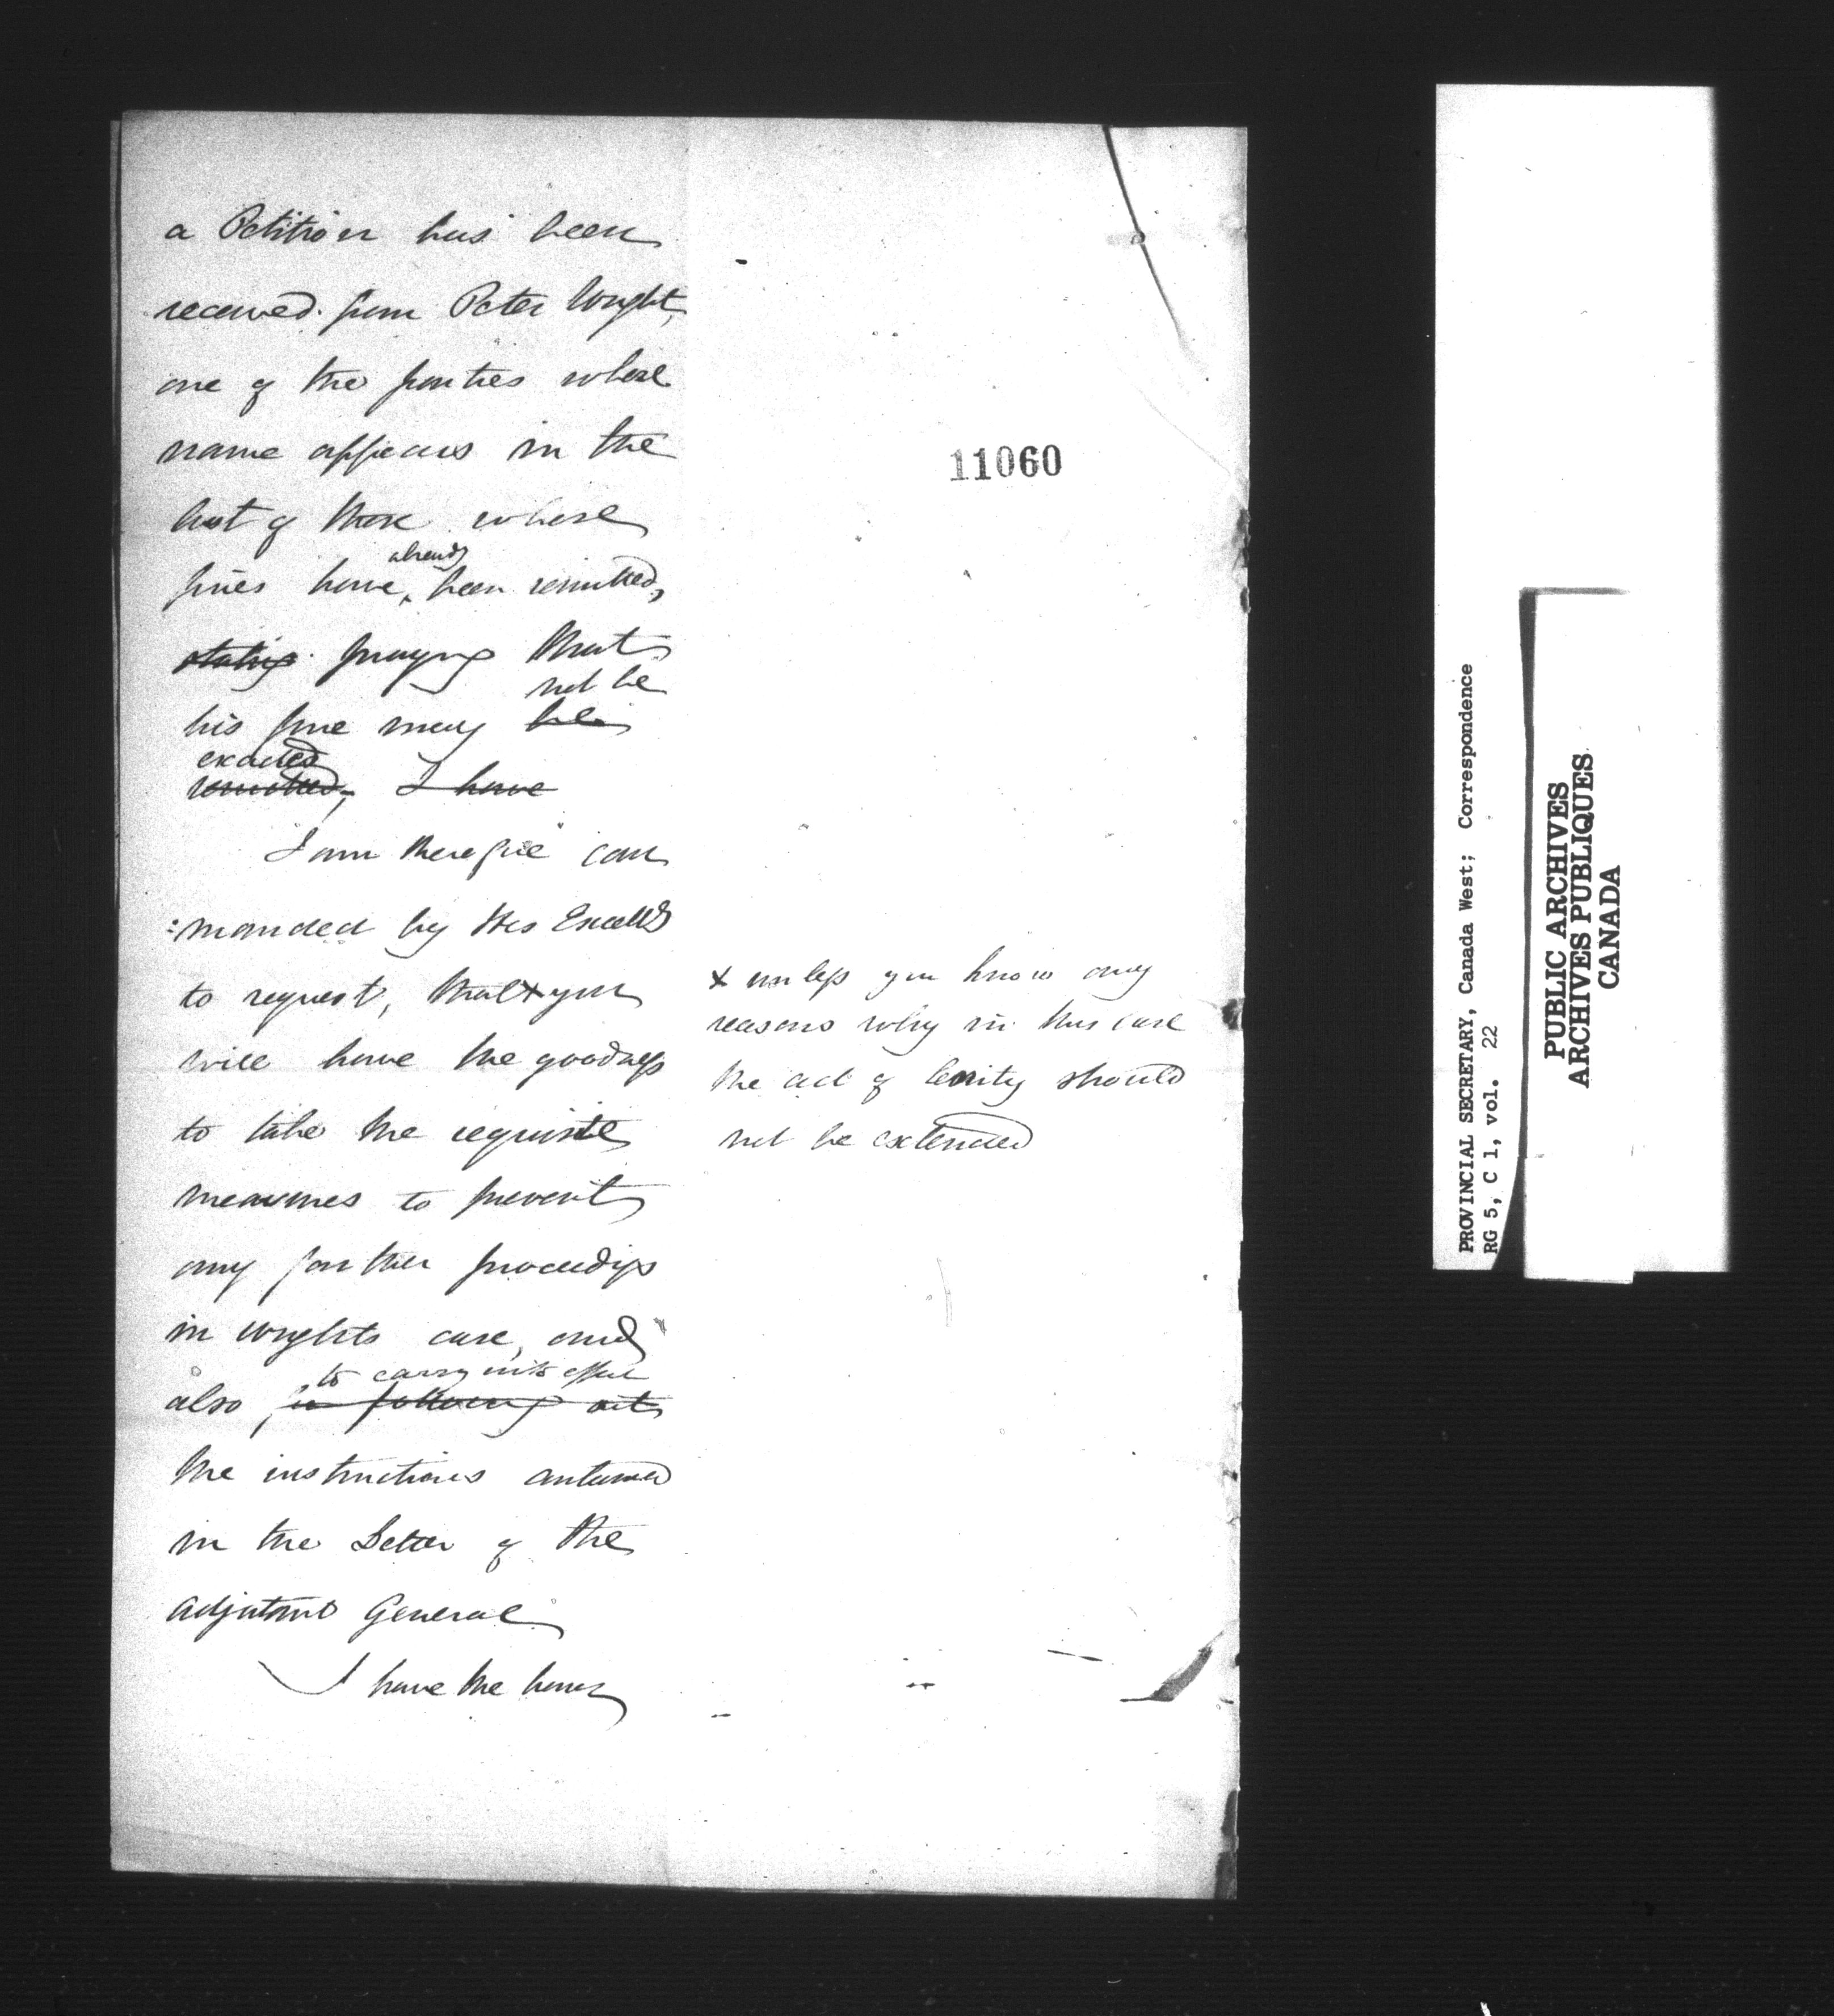 a Petition has been
received from Peter Wright,
one of the parties whose
name appears in the
list of those whose
already
fines have ^ been remitted,
stating praying that
not be
his fine may be
exacted
remitted, I have
I am therefore com
:manded by His Excelly
to request, that x you
will have the goodness
to take the requisite
measures to prevent
any further proceedings
in Wrights case, and
to carry into effect
also, in following out
the instructions contained
in the Letter of the
Adjutant General
I have the honor
11060
x unless you know any
reasons why in this case
the act of lenity should
not be extended
PROVINCIAL SECRETARY, Canada West; Correspondence
RG 5, C 1, vol. 22
PUBLIC ARCHIVES
ARCHIVES PUBLIQUES
CANADA